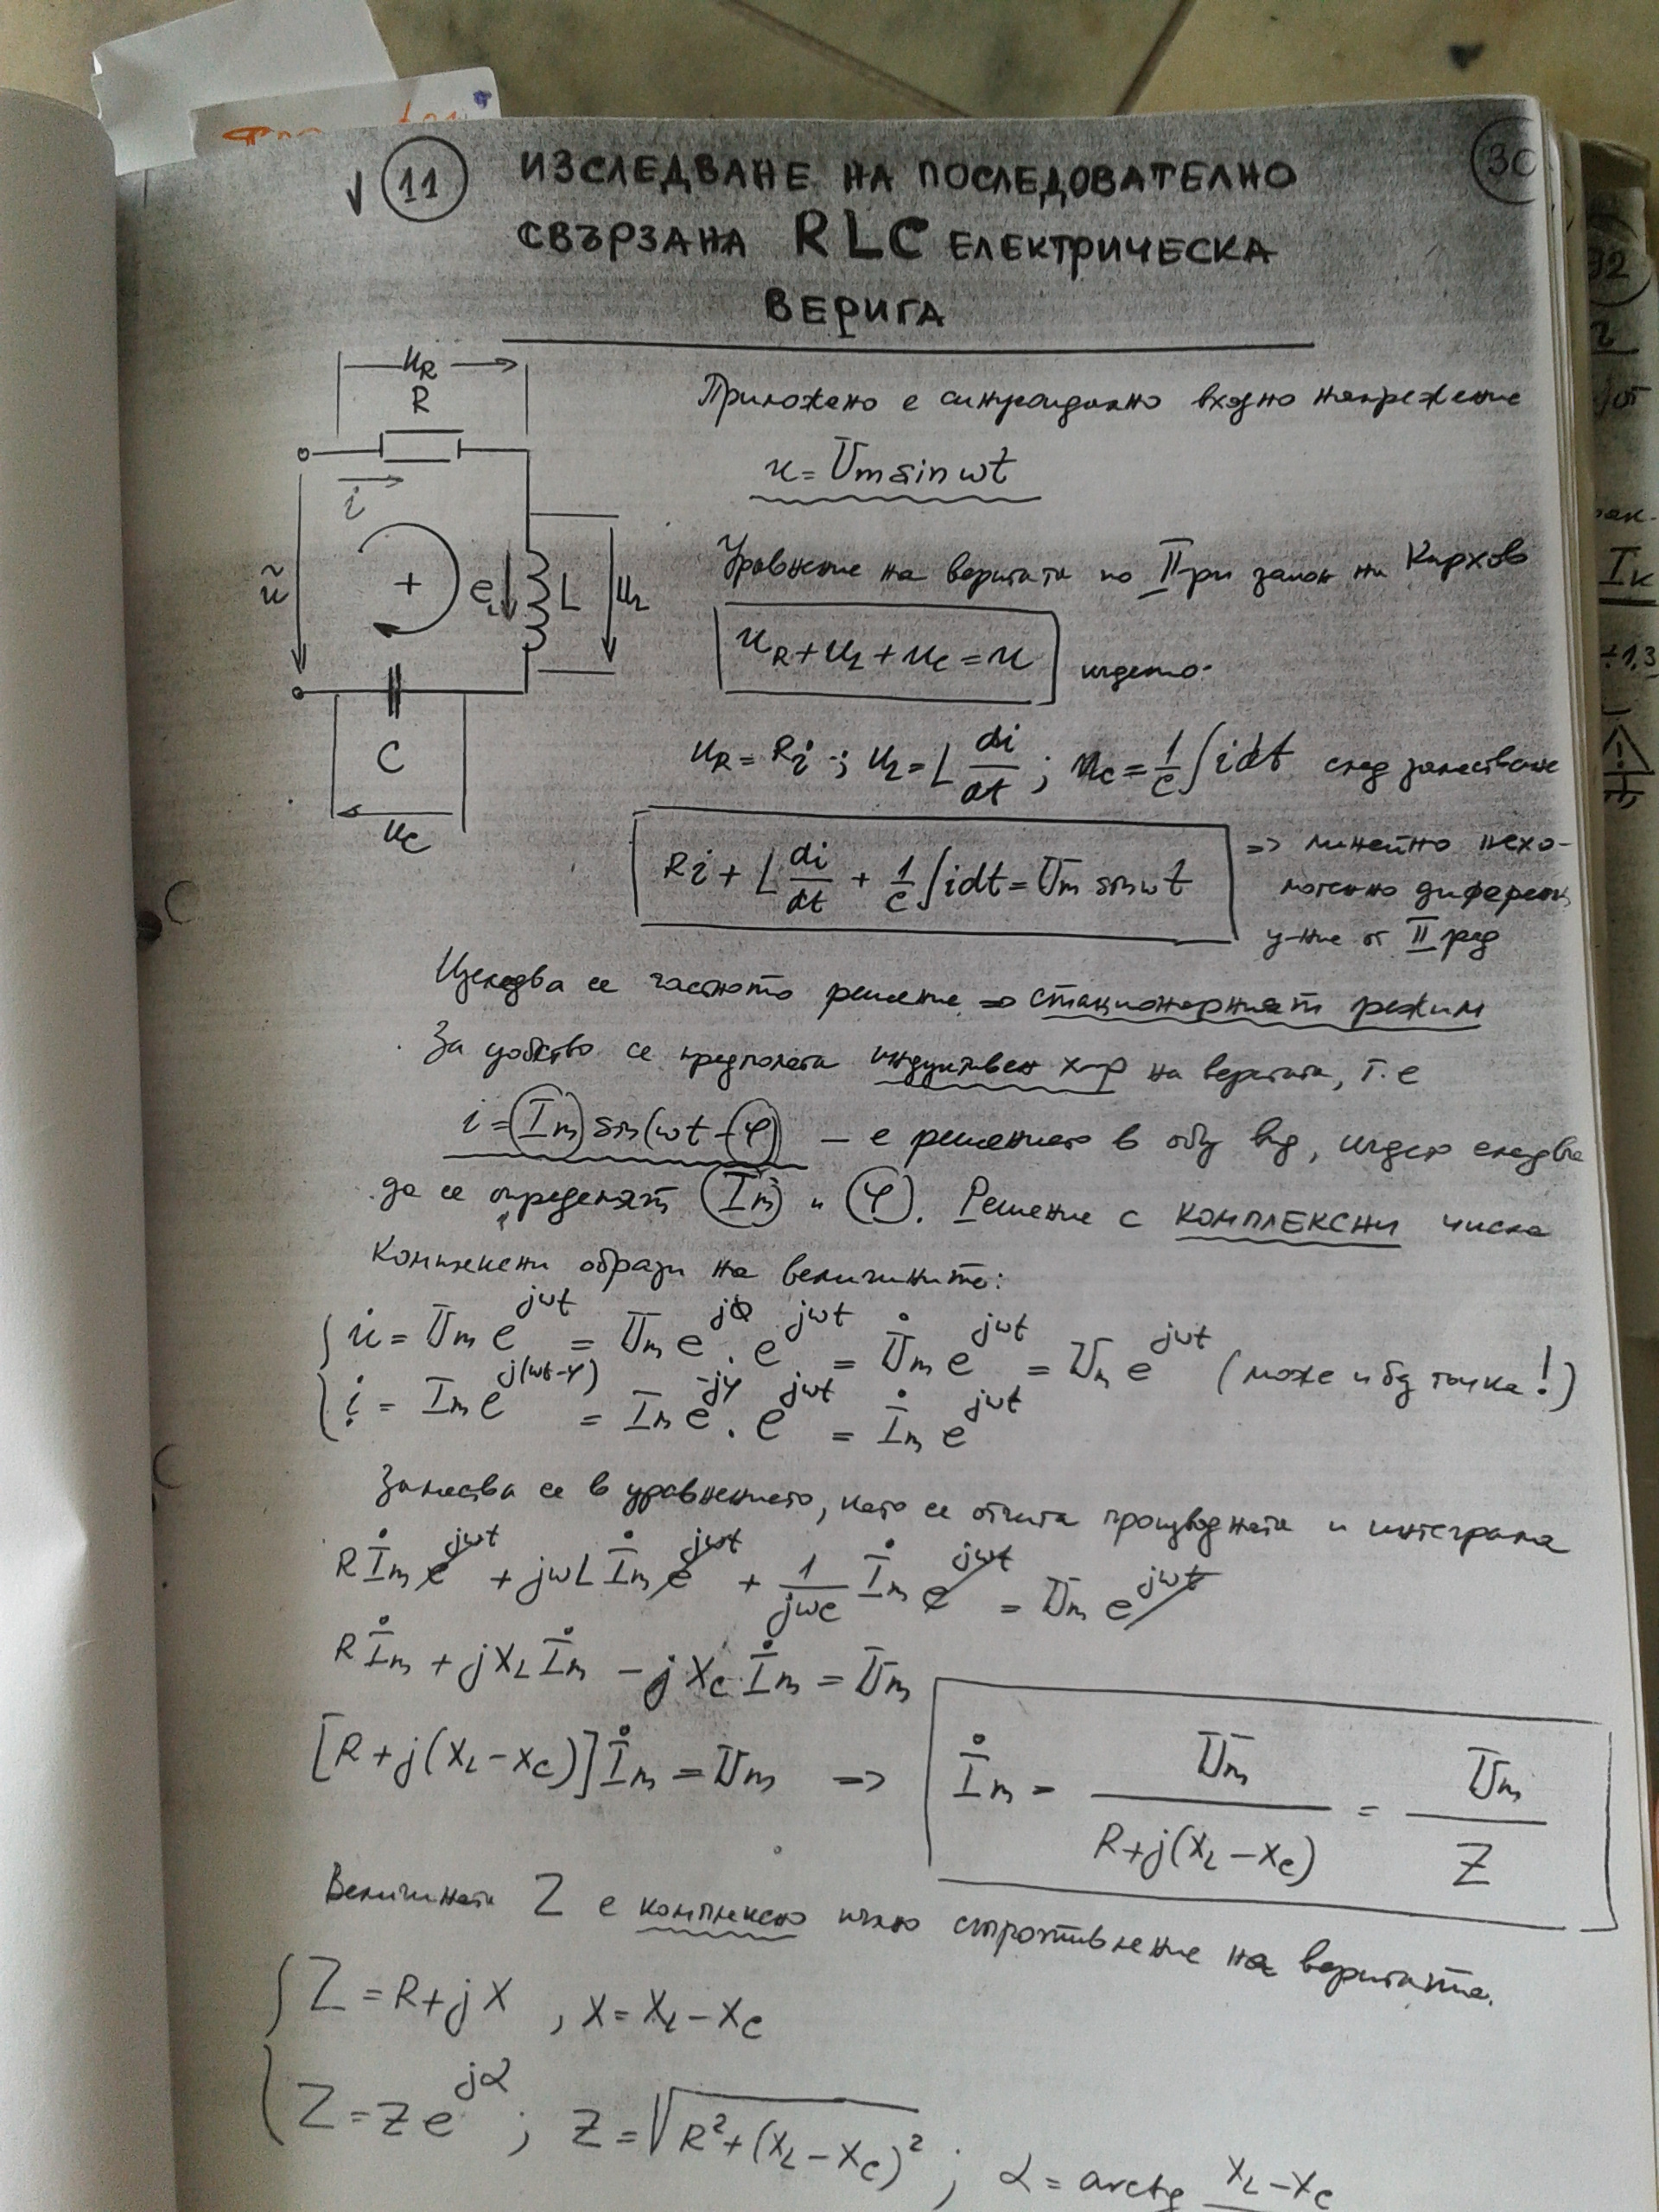 11 ИЗСЛЕДВАНЕ НА ПОСЛЕДОВАТЕЛНО 30
СВЪРЗАНА RLC ЕЛЕКТРИЧЕСКА
ВЕРИГА
u_R
R
i
ũ
+
e_L
L
u_L
C
u_C
Приложено е синусоидално входно напрежение
u = Um sin ωt
Уравнение на веригата по II-ри закон на Кирхов
u_R + u_L + u_C = u където:
u_R = Ri ; u_L = L di/dt ; u_C = 1/C ∫ i dt след заместване
Ri + L di/dt + 1/C ∫ i dt = Um sin ωt => линейно нехо-
могенно диференц.
у-ние от II ред
Изследва се частното решение => стационарният режим
За удобство се предполага индуктивен х-р на веригата, т.е
i = Im sin(ωt - φ) – е решението в общ вид, където следва
да се определят Im и φ. Решение с КОМПЛЕКСНИ числа
Комплексни образи на величините:
u̇ = Um e^jωt = Um e^j0 . e^jωt = U̇m e^jωt = Um e^jωt (може и без точка!)
i̇ = Im e^j(ωt-φ) = Im e^-jφ . e^jωt = İm e^jωt
Замества се в уравнението, като се отчита производната и интеграла
R İm e^jωt + jωL İm e^jωt + 1/jωC İm e^jωt = Um e^jωt
R İm + jX_L İm - jX_C İm = Um
[R + j(X_L - X_C)] İm = Um => İm = Um / R + j(X_L - X_C) = Um / Z
Величината Z е комплексно пълно съпротивление на веригата.
Z = R + jX , X = X_L - X_C
Z = z e^jα ; z = √R² + (X_L - X_C)² ; α = arctg X_L - X_C
92
Iк